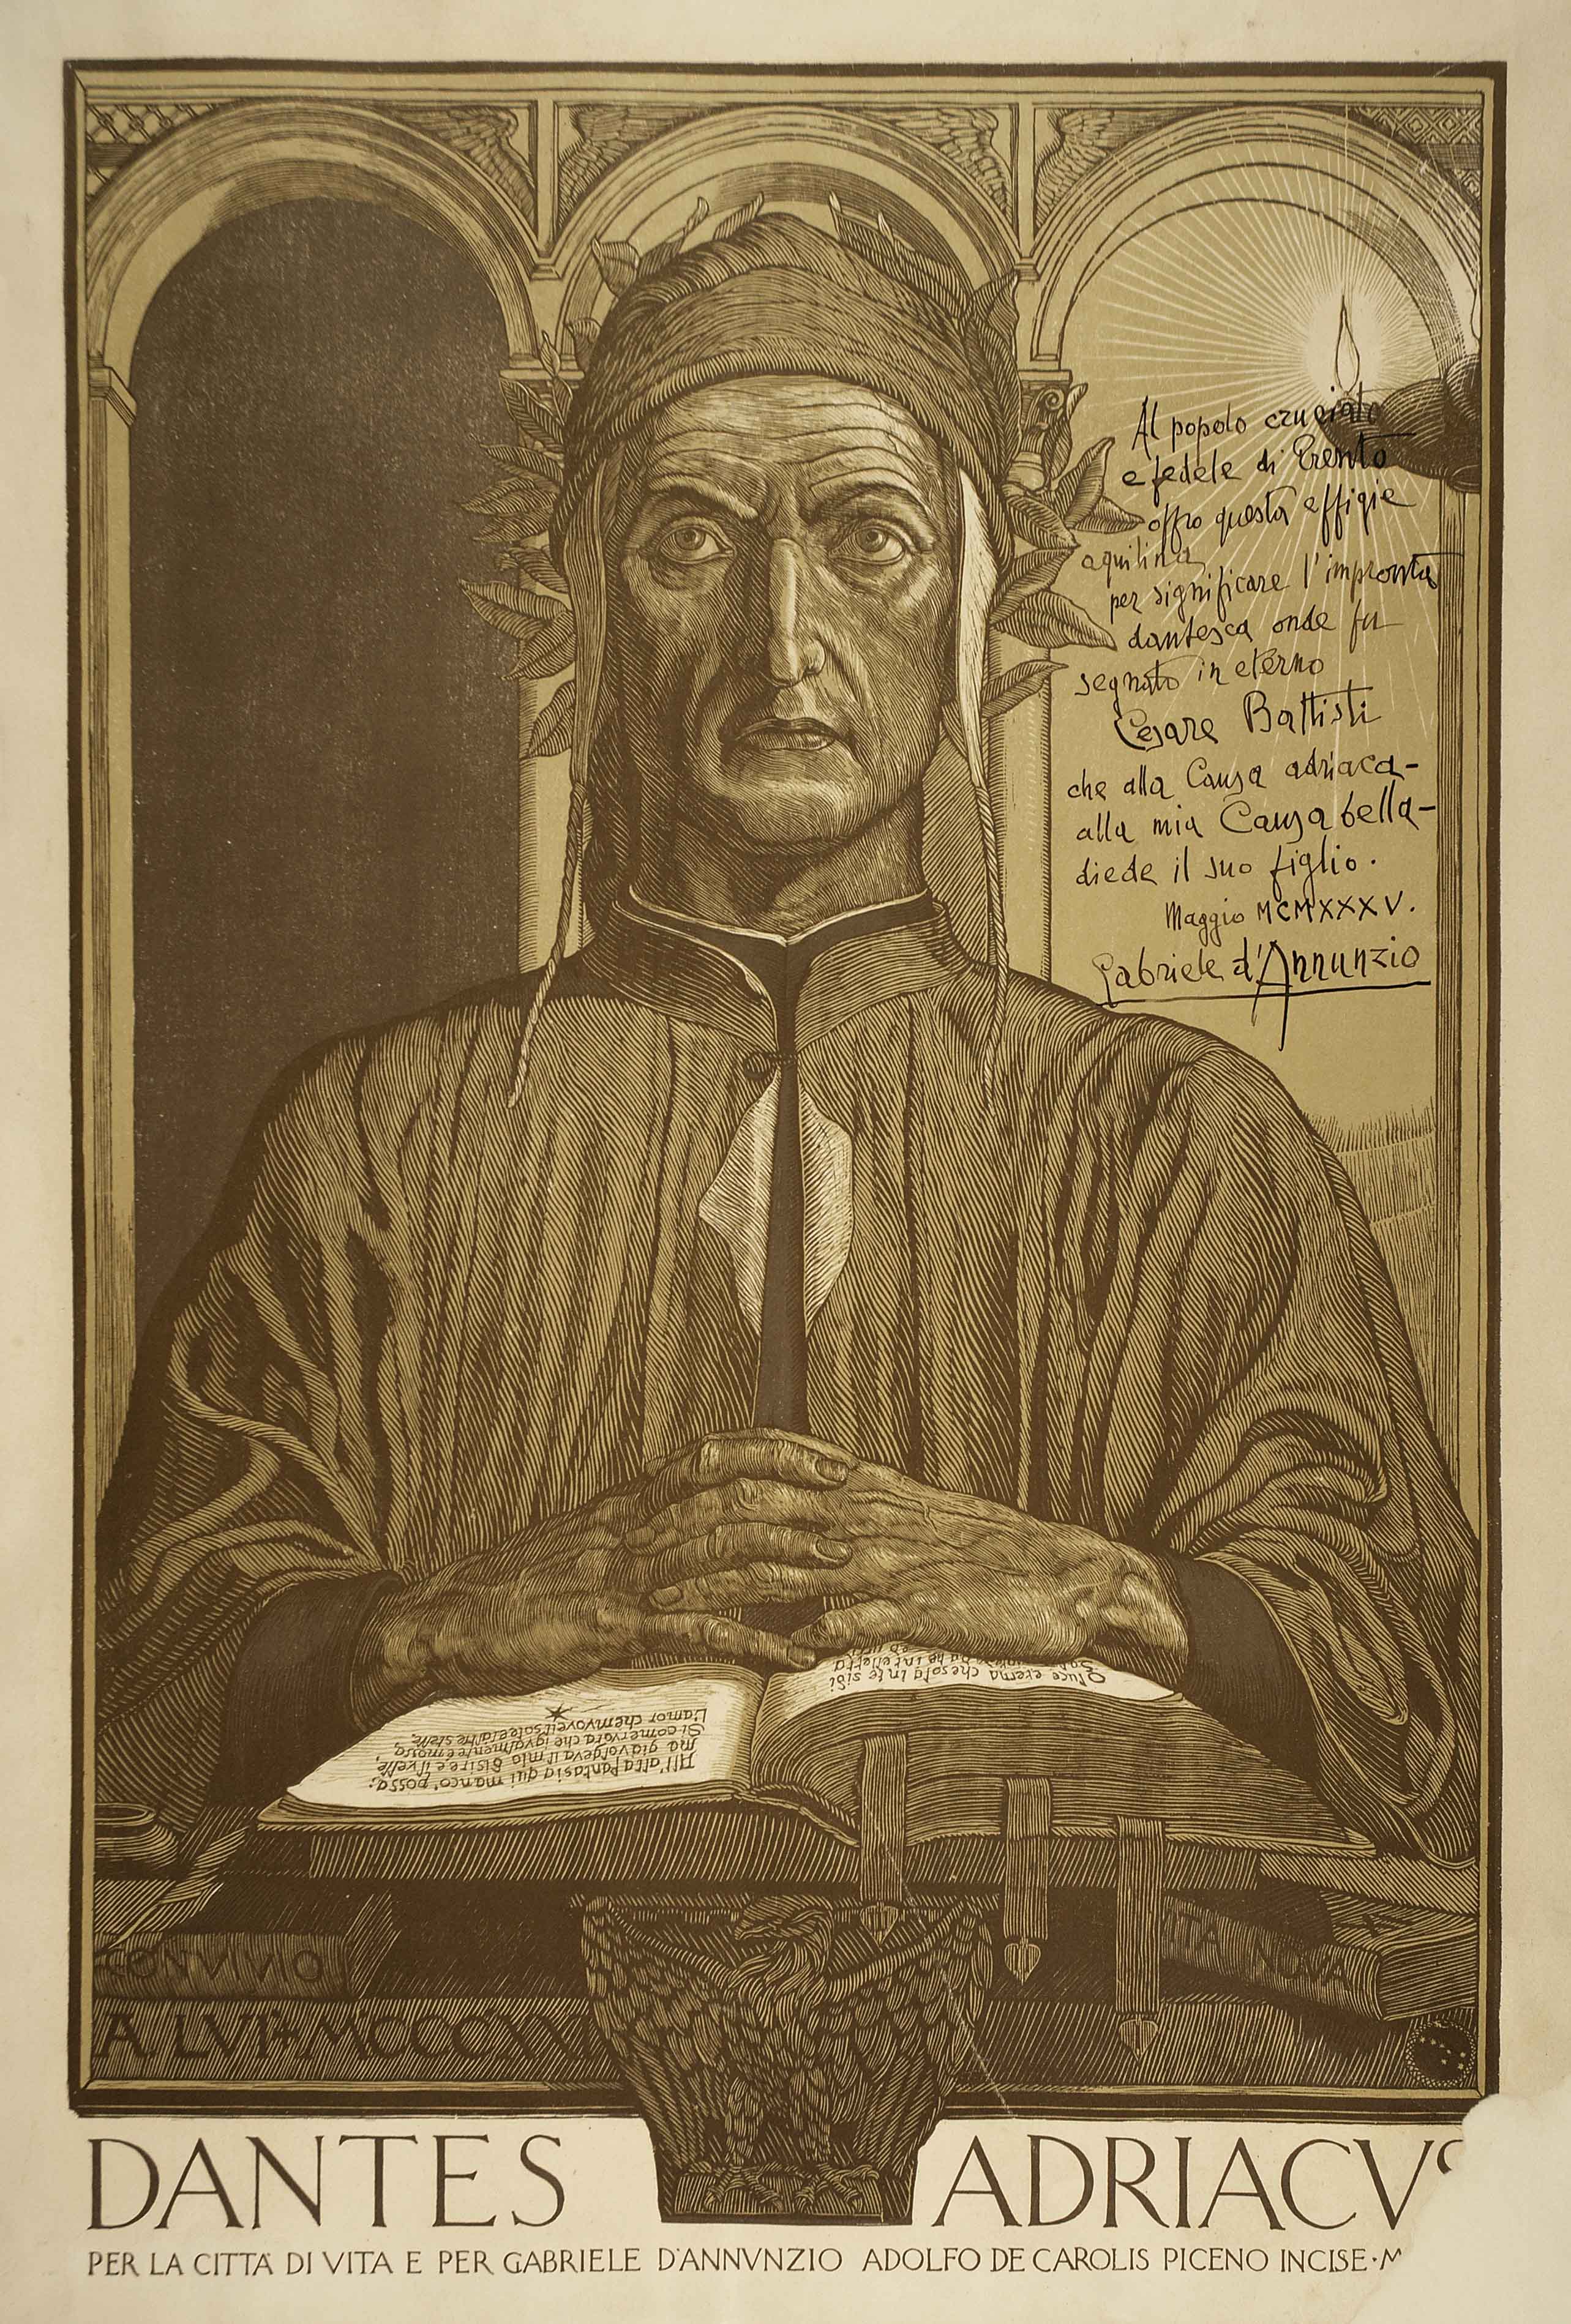 Al popolo cruciato
e fedele di Trento
offro questa effigie
aquilina
per significare l'impronta
dantesca onde fu
segnato in eterno
Cesare Battisti
che alla Causa adriaca-
alla mia Causa bella-
diede il suo figlio.
Maggio MCMXXXV.
Gabriele d'Annunzio
O luce eterna che sola in te sidi
All'alta fantasia qui mancò possa;
ma già volgeva il mio disire e il velle
Si come rota che igualmente è mossa,
L'amor che muove il sole e l'altre stelle.
CONVIVIO
ITA NOVA
A LVI + MCCCCXXI
DANTES ADRIACV
PER LA CITTÀ DI VITA E PER GABRIELE D'ANNVNZIO ADOLFO DE CAROLIS PICENO INCISE · M